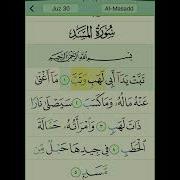 Juz 30 Al-Masadd
سُورَةُ المَسَدِ
بِسْمِ اللَّهِ الرَّحْمَٰنِ الرَّحِيمِ
تَبَّتْ يَدَآ أَبِى لَهَبٍ وَتَبَّ ١ مَآ أَغْنَىٰ
عَنْهُ مَالُهُۥ وَمَا كَسَبَ ٢ سَيَصْلَىٰ نَارًا
ذَاتَ لَهَبٍ ٣ وَٱمْرَأَتُهُۥ حَمَّالَةَ
ٱلْحَطَبِ ٤ فِى جِيدِهَا حَبْلٌ مِّن
مَّسَدٍۭ ٥